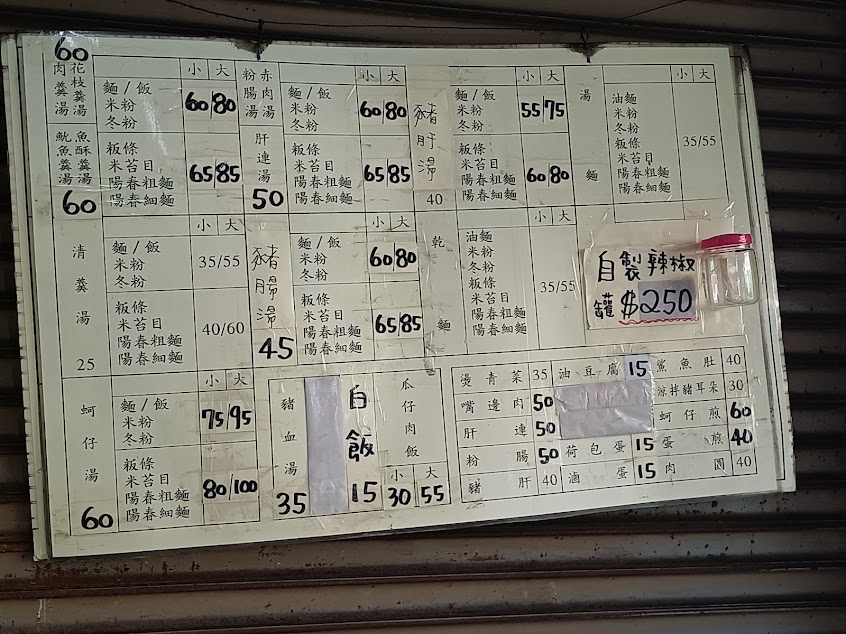 60
肉羹湯 花枝羹湯
魷魚羹湯 魚酥羹湯
60
小 大
麵/飯
米粉
冬粉
60/80
粄條
米苔目
陽春粗麵
陽春細麵
65/85
粉腸湯 赤肉湯
肝連湯
50
小 大
麵/飯
米粉
冬粉
60/80
粄條
米苔目
陽春粗麵
陽春細麵
65/85
豬肝湯
40
小 大
麵/飯
米粉
冬粉
55/75
粄條
米苔目
陽春粗麵
陽春細麵
60/80
湯麵
小 大
油麵
米粉
冬粉
粄條
米苔目
陽春粗麵
陽春細麵
35/55
清羹湯
25
小 大
麵/飯
米粉
冬粉
35/55
粄條
米苔目
陽春粗麵
陽春細麵
40/60
豬腸湯
45
小 大
麵/飯
米粉
冬粉
60/80
粄條
米苔目
陽春粗麵
陽春細麵
65/85
乾麵
小 大
油麵
米粉
冬粉
粄條
米苔目
陽春粗麵
陽春細麵
35/55
自製辣椒
罐$250
蚵仔湯
60
小 大
麵/飯
米粉
冬粉
75/95
粄條
米苔目
陽春粗麵
陽春細麵
80/100
豬血湯
35
白飯
15
瓜仔肉飯
小 大
30 55
燙青菜 35 油豆腐 15 鯊魚肚 40
嘴邊肉 50 涼拌豬耳朵 30
肝連 50 蚵仔煎 60
粉腸 50 荷包蛋 15 蛋煎 40
豬肝 40 滷蛋 15 肉圓 40